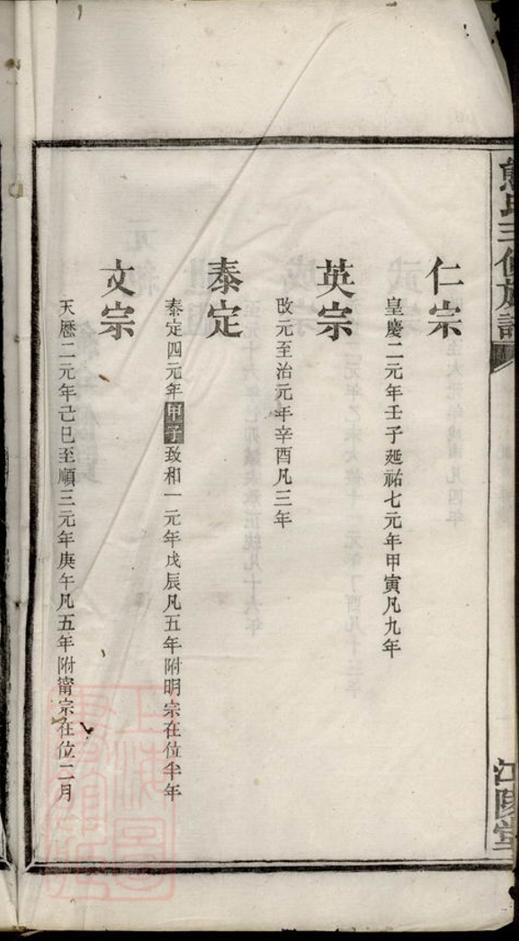 仁宗
皇慶二元年壬子延祐七元年甲寅凡九年
英宗
改元至治元年辛酉凡三年
泰定
泰定四元年甲子致和一元年戊辰凡五年附明宗在位半年
文宗
天厯二元年己巳至順三元年庚午凡五年附甯宗在位二月
氏三修族譜
江陵堂